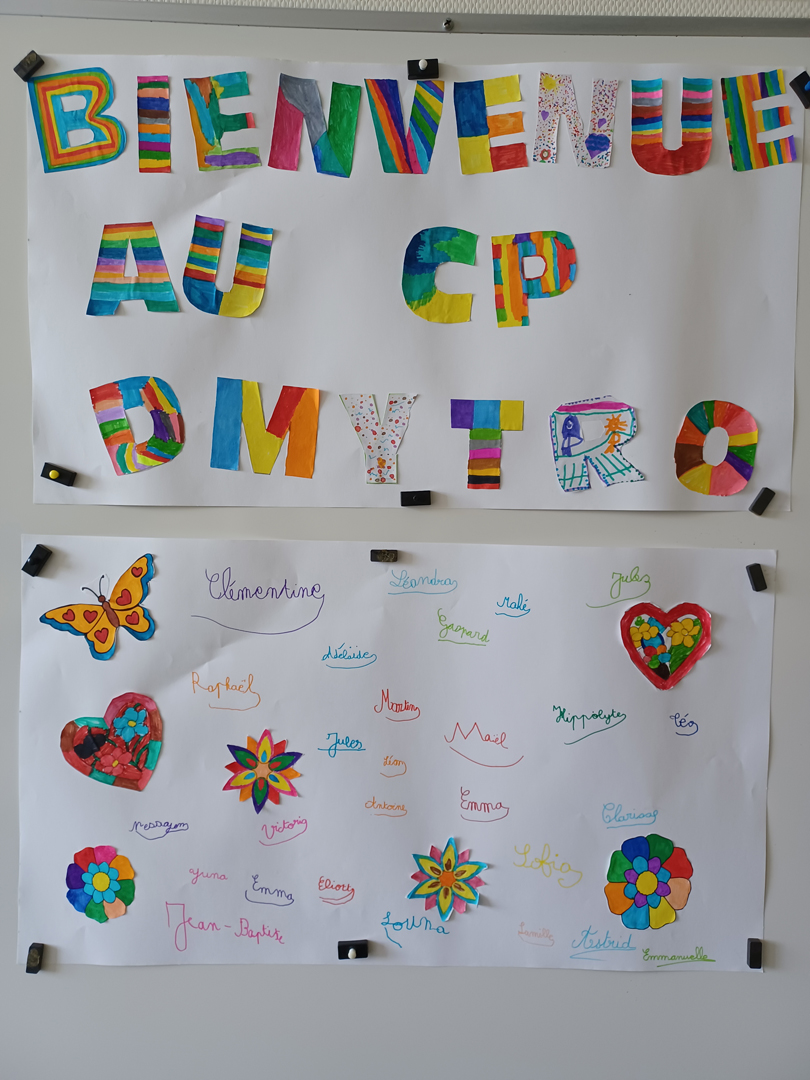 BIENVENUE
AU CP
DMYTRO
Clémentine Léandra Jules
Maké
Gaspard
Adélaïde
Raphaël
Martin
Hippolyte Léo
Jules Maël
Léon
Antoine Emma Clarisse
Victoria
Sofia
Juna Emma
Jean-Baptiste Louna
Astrid
Emmanuelle